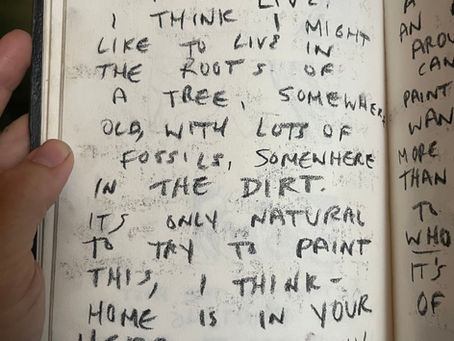 LIVE.
I THINK I MIGHT
LIKE TO LIVE IN
THE ROOTS OF
A TREE, SOMEWHERE
OLD, WITH LOTS OF
FOSSILS, SOMEWHERE
IN THE DIRT.
IT'S ONLY NATURAL
TO TRY TO PAINT
THIS, I THINK -
HOME IS IN YOUR
A
AN AROU
CAN
PAINT
WAN
MORE
THAN
TO
WHO
IT'S
OF